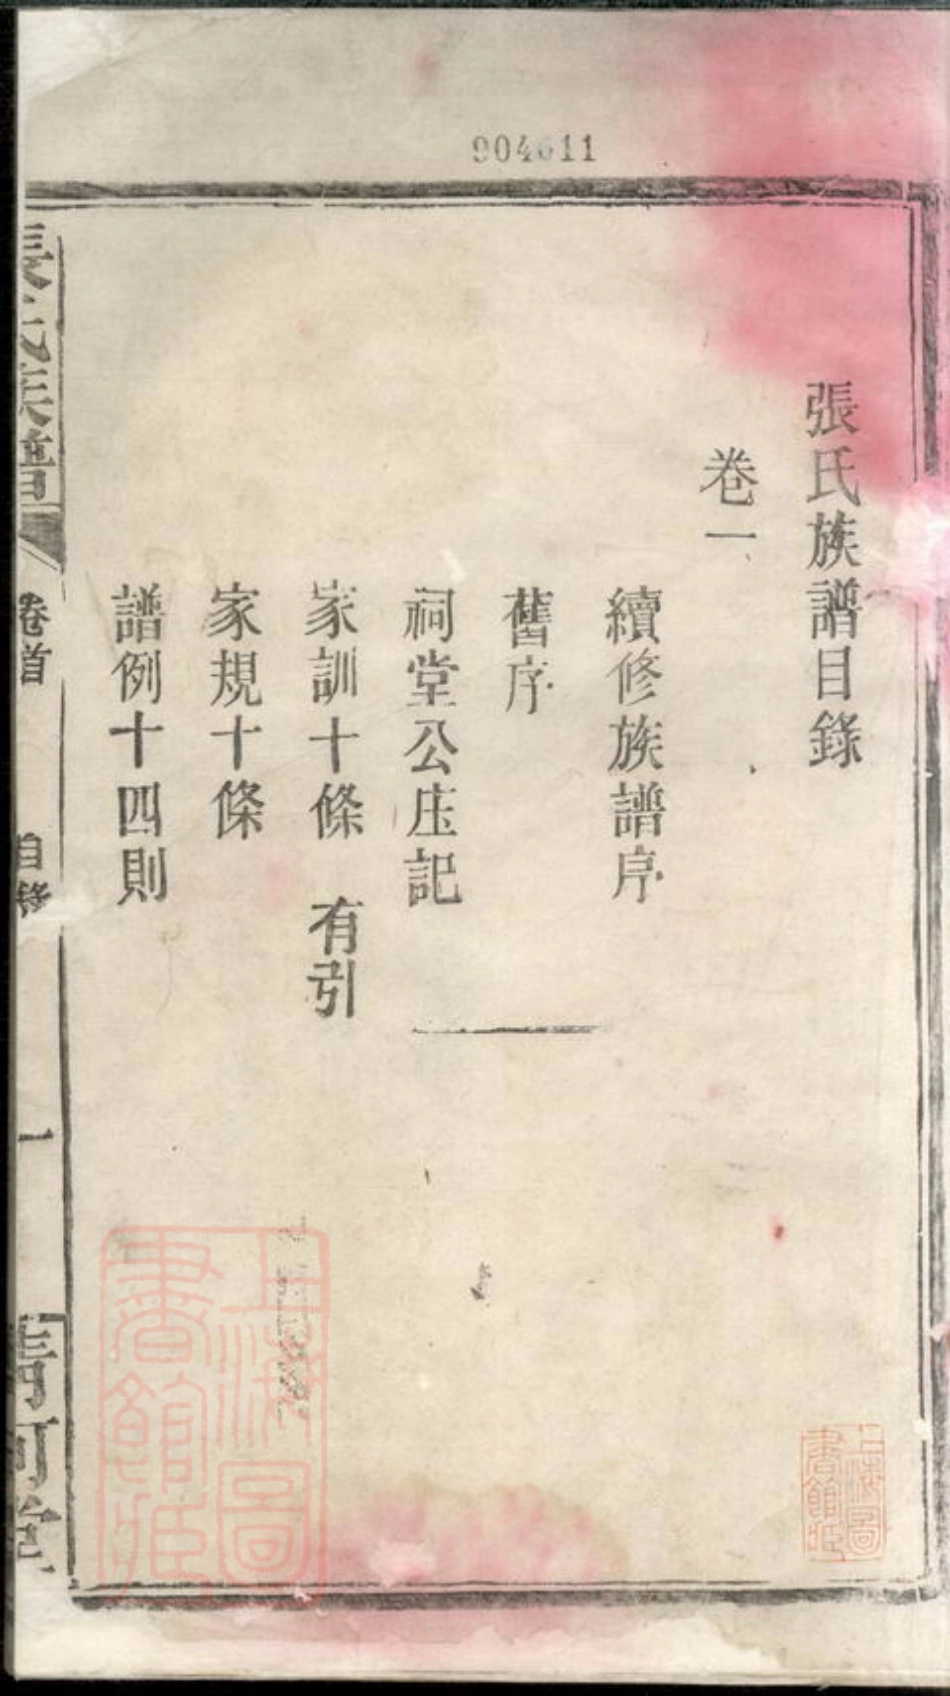 904611
張氏族譜目錄
卷一
續修族譜序
舊序
祠堂公庄記
家訓十條 有引
家規十條
譜例十四則
張氏族譜
卷首
目錄
一
清河堂
上海圖書館藏
上海圖書館藏